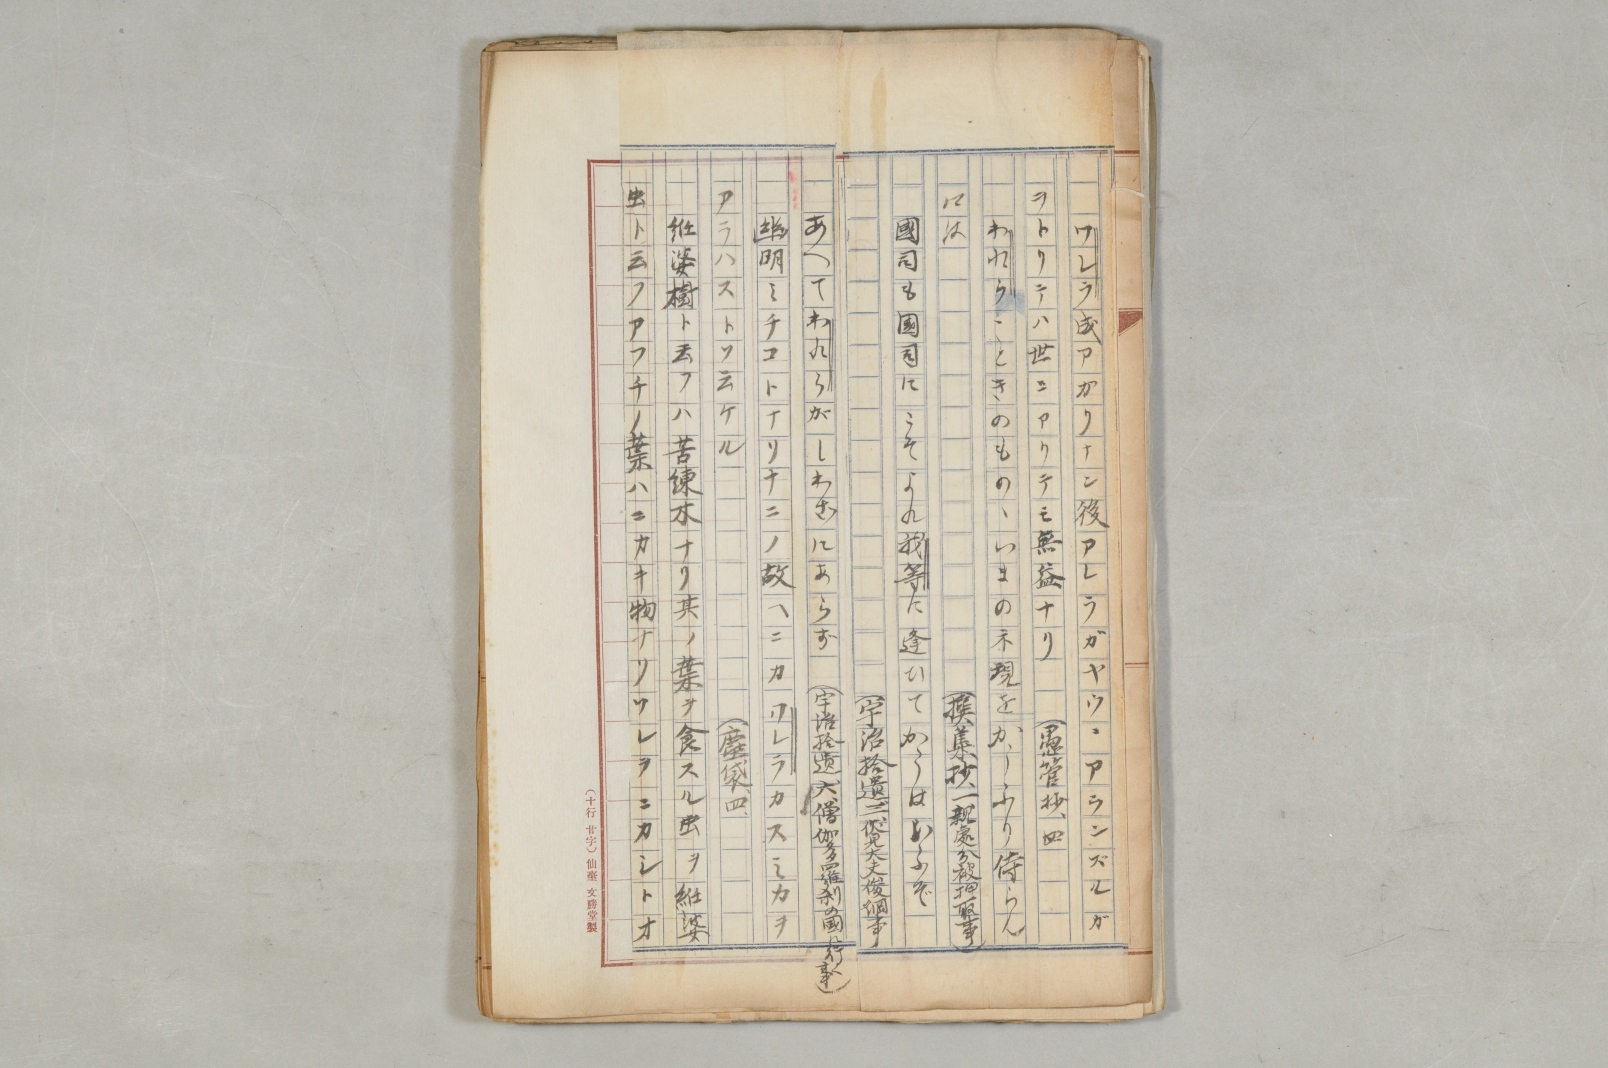 ワレラ成アガリナン後アレラガヤウニアランズルガ
ヲトリテハ世ニアリテモ無益ナリ（愚管抄、四
われらことき のものゝいまの示現をかうふり侍らん
には（撰集抄、一親處分被押取事）
國司も國司にこそよれ我等に逢ひてかうはいふぞ
（宇治拾遺三伏見大夫俊綱事）
あへてわれらがしわざにあらず（宇治拾遺、六僧伽多羅刹の國に行事）
幽明ミチコトナリナニノ故ヘニカワレラカスミカヲ
アラハストソ云ケル（塵袋、四、
紝婆樹ト云フハ苦練木ナリ其ノ葉ヲ食スル虫ヲ紝婆
虫ト云フアフチノ葉ハニカキ物ナリソレヲニカシトオ
（十行 廿字）仙臺 文勝堂製